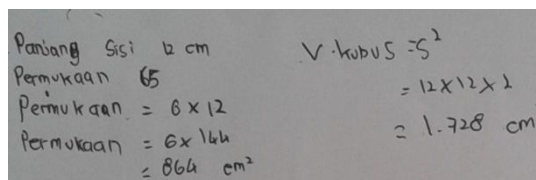 Panjang Sisi 12 cm
Permukaan 6S
Permukaan = 6 x 12
Permukaan = 6 x 144
= 864 cm²
V. kubus = S²
= 12 x 12 x 2
= 1.728 cm